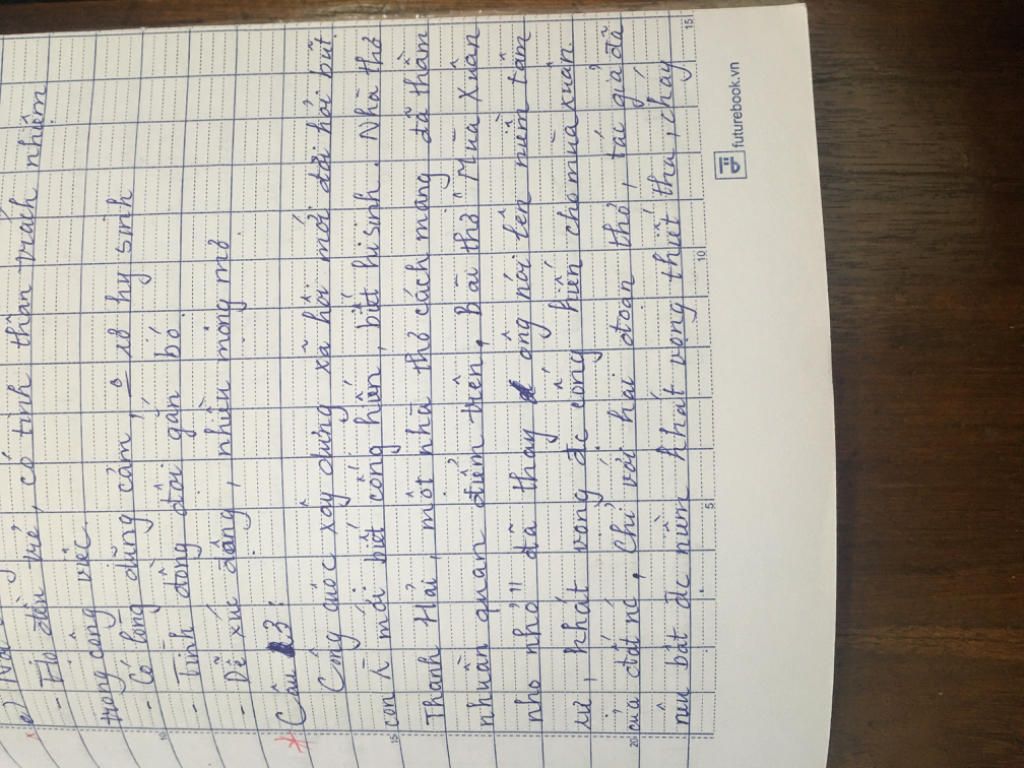 e)
- Họ đều trẻ, có tinh thần trách nhiệm
trong công việc
- Có lòng dũng cảm, o sợ hy sinh
- Tình đồng đội gắn bó
- Dễ xúc động, nhiều mộng mơ
* Câu 3:
Công cuộc xây dựng xã hội mới đòi hỏi biết
con mới biết cống hiến, biết hi sinh. Nhà thơ
Thanh Hải, một nhà thơ cách mạng đã thấm
nhuần quan điểm trên. Bài thơ "Mùa xuân
nho nhỏ" đã thay ông nói lên niềm tâm
sự, khát vọng đc cống hiến cho mùa xuân
của đất nc. Chỉ với hai đoạn thơ, tác giả đã
nêu bật đc niềm khát vọng thiết tha, cháy
15
20
5
10
15
futurebook.vn